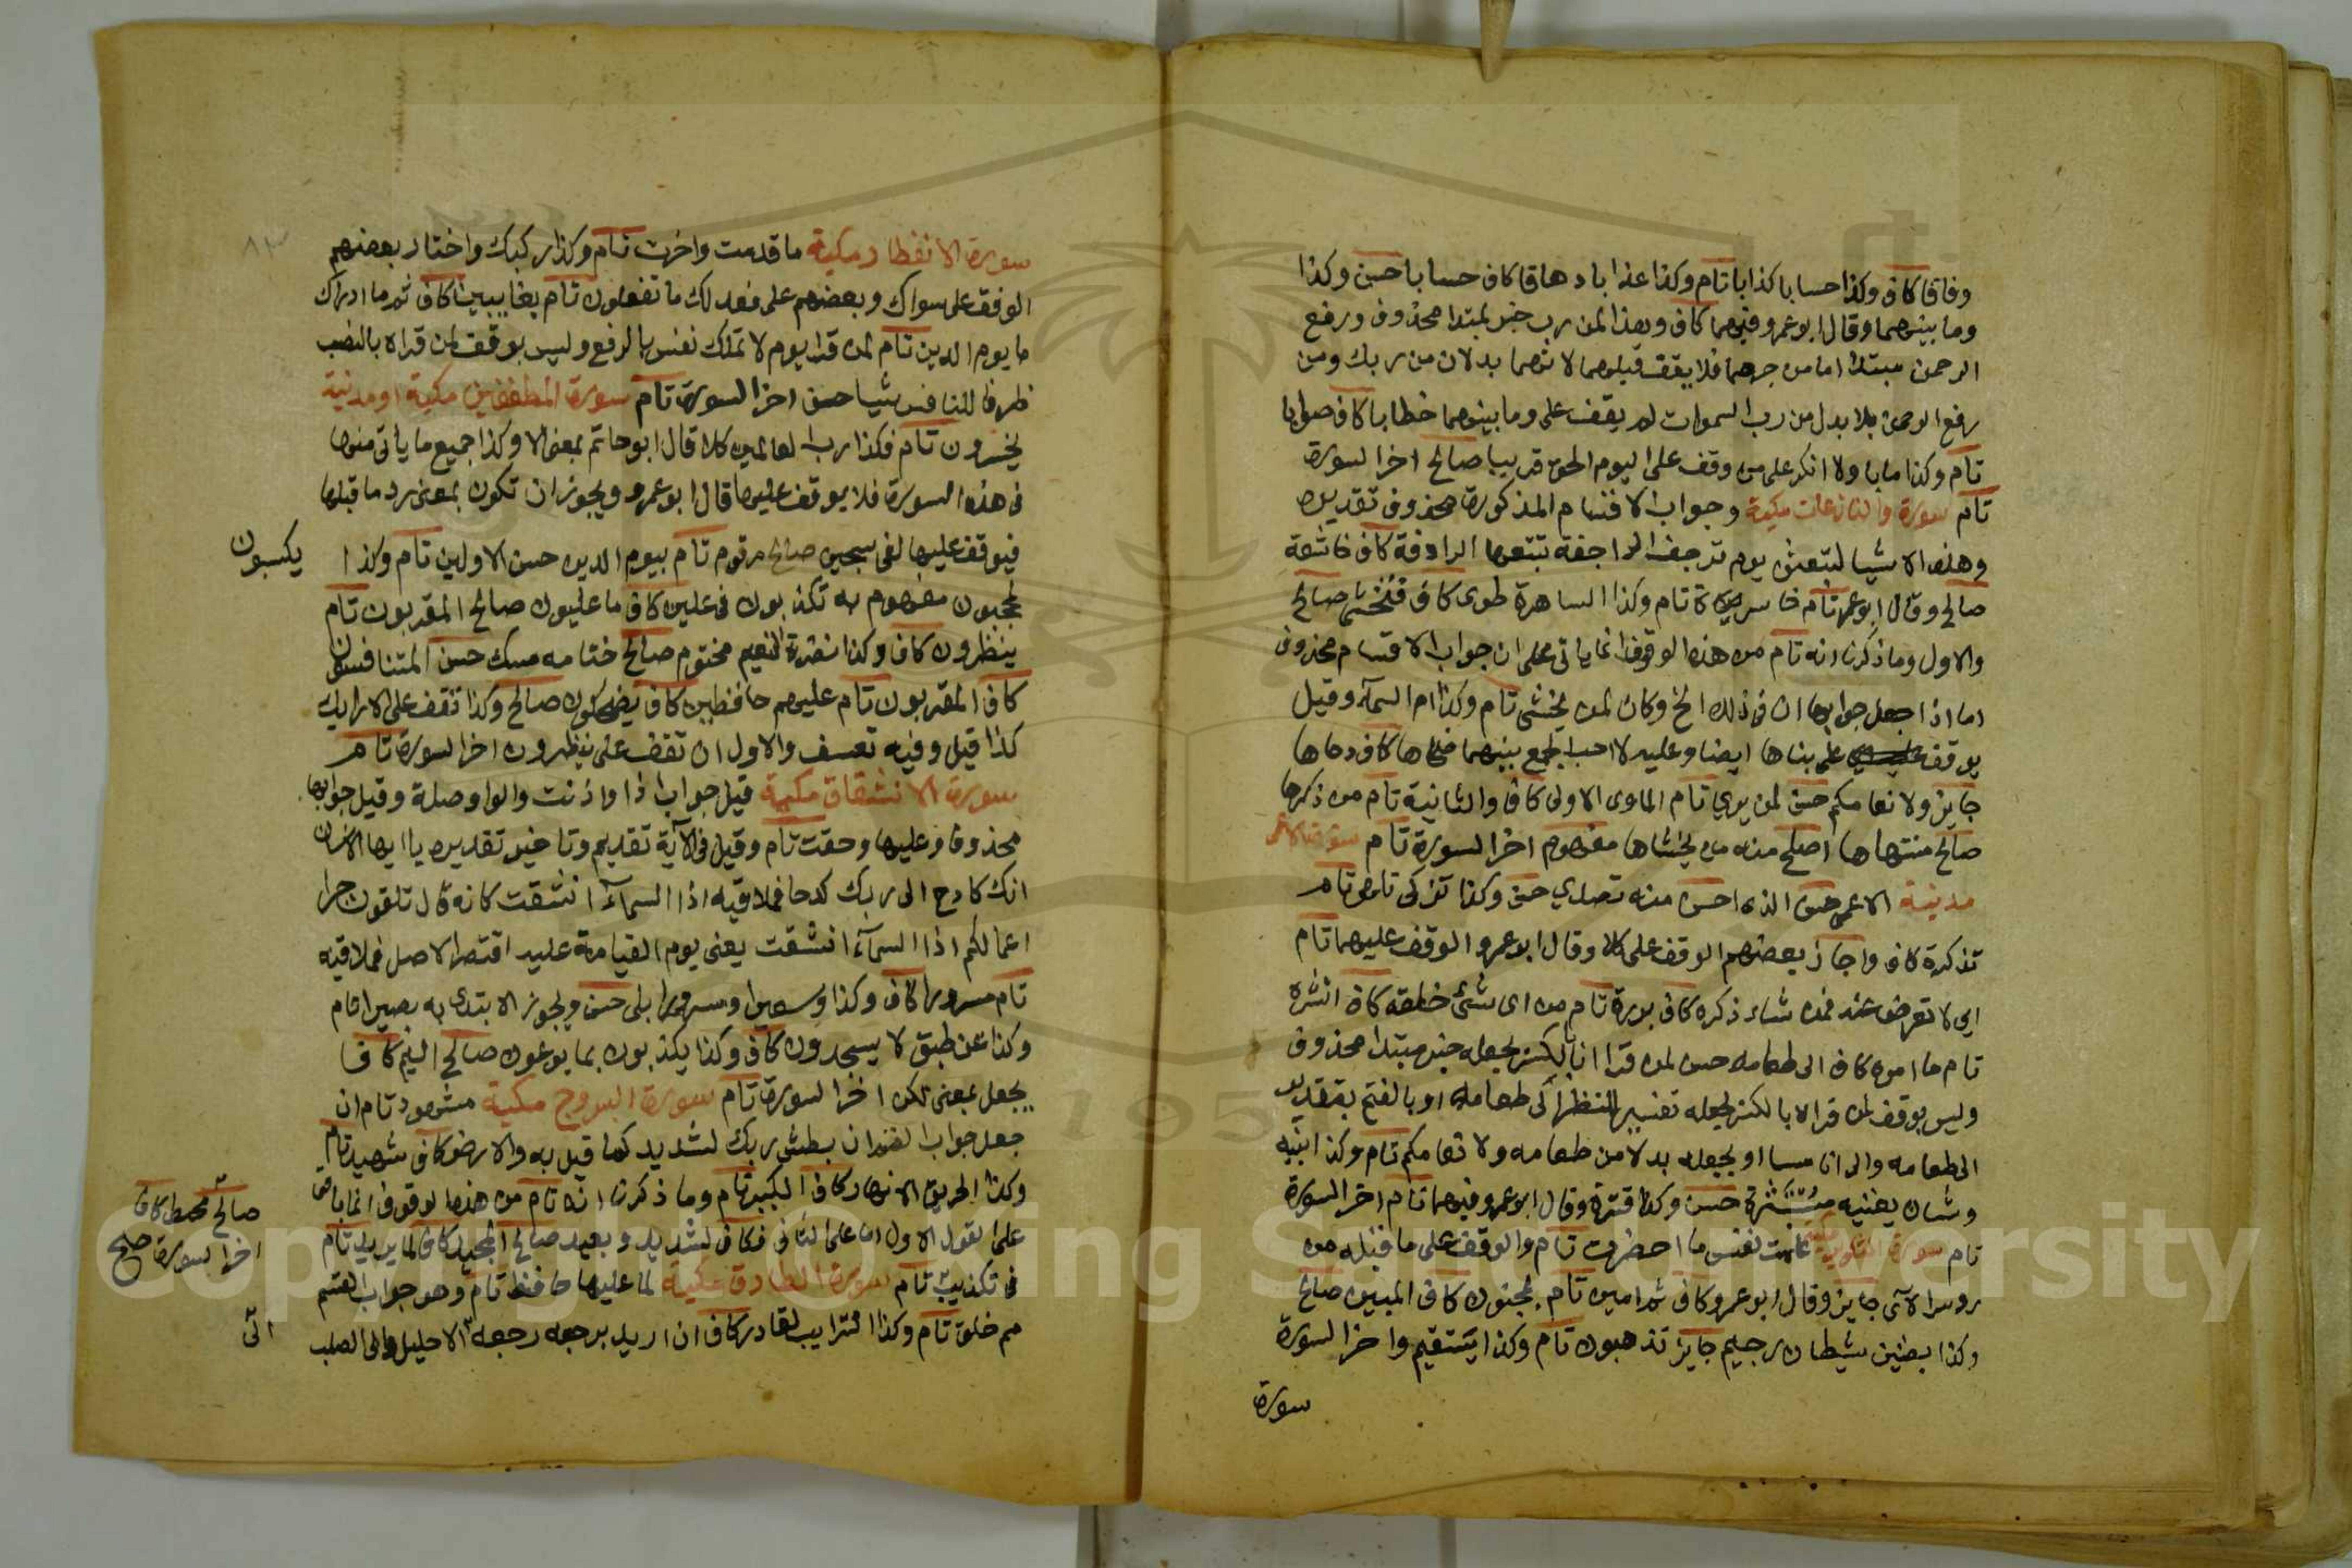 وفاقا كاف وكذا حسابا كذابا تام وكذا عذابا دهاقا كاف حسابا حسن وكذا
وما بينهما وقال ابو عمرو فيهما كاف وهذا لمن رب خبر لمبتدا محذوف ورفع
الرحمن مبتدا اما من جرهما فلا يقف قبلهما لانهما بدلان من ربك ومن
رفع الرحمن بدل من رب السموات لم يقف على وما بينهما خطابا كاف صوابا
تام وكذا مابا ولا انكر على من وقف على اليوم الحق قريبا صالح اخر السورة
تام سورة والنازعات مكية وجواب الاقسام المذكورة محذوف تقديره
وهذه الاشيا لتبعثن يوم ترجف الراجفة تتبعها الرادفة كاف خاشعة
صالح وقال ابو عمرو تام خاسرة تام وكذا الساهرة طوى كاف فتخشى صالح
والاول وما ذكرنا انه تام من هذه الوقوف انما ياتى على ان جواب الاقسام محذوف
اما اذا جعل جوابها ان فى ذلك الخ وكان لمن يخشى تام وكذا ام السمآء وقيل
يوقف على بناها ايضا وعليه لا احب الجمع بينهما ضحاها كاف دحاها
جايز ولانعامكم حسن لمن يرى تام الماوى الاولى كاف والثانية تام من ذكرها
صالح منتهاها اصلح منه من يخشاها مفهوم اخر السورة تام سورة الاعمى
مدنية الاعمى حسن الذكرى احسن منه تصدى حسن وكذا تزكى تلهى تام
تذكرة كاف واجاز بعضهم الوقف على كلا وقال ابو عمرو الوقف عليهما تام
اى لا تعرض عنه فمن شاء ذكره كاف بررة تام من اى شئ خلقه كاف انشره
تام ما امره كاف الى طعامه حسن لمن قرا انا بالكسر بجعله خبر مبتدا محذوف
وليس بوقف لمن قراه بالكسر بجعله تفسيرا للنظر الى طعامه او بالفتح بتقدير
الى طعامه والى انا صببنا او بجعله بدلا من طعامه ولانعامكم تام وكذا ابنيه
وشان يغنيه مستبشرة حسن وكذا قترة وقال ابو عمرو فيهما تام اخر السورة
تام سورة التكوير مكية علمت نفس ما احضرت تام والوقف على ما قبله من
روس الآى جايز وقال ابو عمرو كاف ثم امين تام بمجنون كاف المبين صالح
وكذا بضنين شيطان رجيم جايز تذهبون تام وكذا يستقيم واخر السورة
سورة
سورة الانفطار مكية ما قدمت واخرت تام وكذا ركبك واختار بعضهم
الوقف على سواك وبعضهم على فعدلك ما تفعلون تام بغايبين كاف ثم ما ادراك
ما يوم الدين تام لمن قرا يوم لا تملك نفس بالرفع وليس بوقف لمن قراه بالنصب
ظرفا لنفس شيا حسن اخر السورة تام سورة المطففين مكية او مدنية
يخسرون تام فكذا رب العالمين كلا قال ابو حاتم بمعنى الا وكذا جميع ما ياتى منها
فى هذه السورة فلا يوقف عليها قال ابو عمرو ويجوز ان تكون بمعنى رد ما قبلها
فيوقف عليها لفى سجين صالح مرقوم تام بيوم الدين حسن الاولين تام وكذا
يكسبون
لمحجوبون مفهوم به تكذبون كاف ما عليون صالح المقربون تام
ينظرون كاف وكذا نضرة النعيم مختوم صالح ختامه مسك حسن المتنافسون
كاف المقربون تام عليهم حافظين كاف يضحكون صالح وكذا تقف على الارايك
كذا قيل وفيه تعسف والاول ان تقف على ينظرون اخر السورة تام
سورة الانشقاق مكية قيل جواب اذا واذنت والواو صلة وقيل جوابها
محذوف وعليها وحقت تام وقيل فى الآية تقديم وتاخير تقديره يا ايها الانسان
انك كادح الى ربك كدحا فملاقيه اذا السمآء انشقت كانه قال تلقون جزا
اعمالكم اذا السمآء انشقت يعنى يوم القيامة عليه اقتصر الاصل فملاقيه
تام مسرورا كاف وكذا وسعيرا ومسرورا بلى حسن ويجوز الابتدا به بصيرا تام
وكذا عن طبق لا يسجدون كاف وكذا يكذبون بما يوعون صالح اليم كاف
يجعل بمعنى لكن اخر السورة تام سورة البروج مكية مشهود تام ان
جعل جواب القسم ان بطش ربك لشديد كما قيل به والارض كاف شهيد تام
وكذا الحريق الانهار كاف الكبير تام وما ذكرنا انه تام من هذه الوقوف انما ياتى
على القول الاول اما على الثانى فكاف لشديد ويعيد صالح المجيد كاف لما يريد تام
صالح محيط كاف
اخر السورة صلح
فى تكذيب تام سورة الطارق مكية لما عليها حافظ تام وهو جواب القسم
مم خلق تام وكذا الترايب لقادر كاف ان اريد برجعه رجعه الى الاحليل والى الصلب
اتى